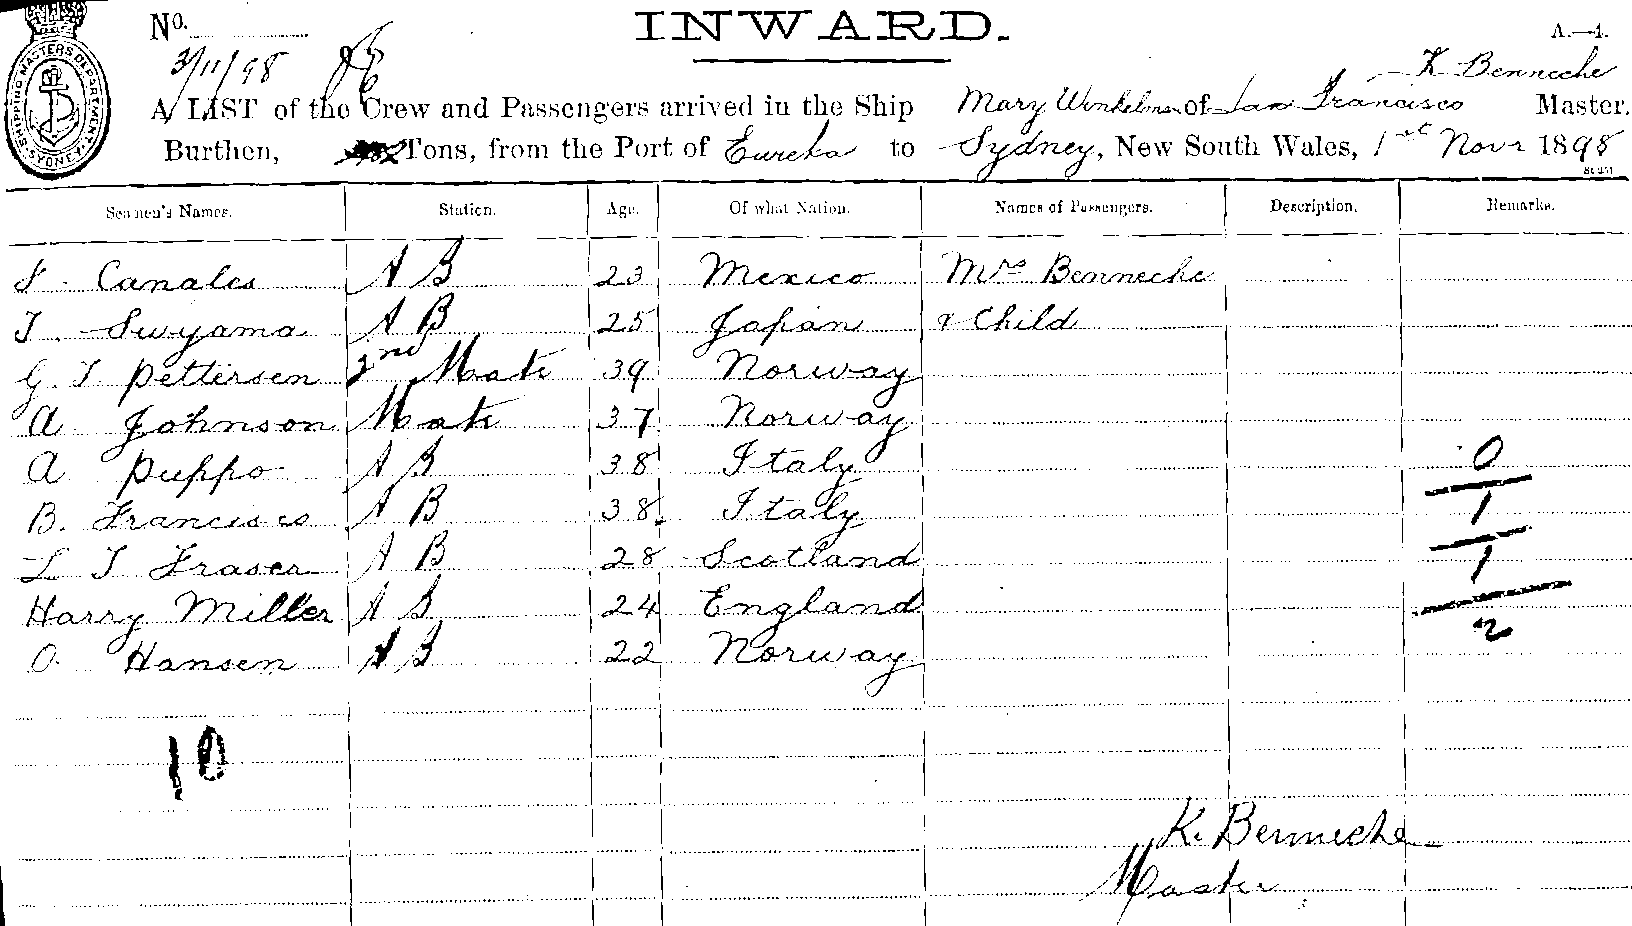 SHIPPING MASTERS DEPARTMENT
SYDNEY
No.
INWARD.
A.—4.
3/11/98
K Benneche
A LIST of the Crew and Passengers arrived in the Ship Mary Winkelman of San Francisco Master.
Burthen, Tons, from the Port of Eureka to Sydney, New South Wales, 1st Novr 1898
Seamen's Names. Station. Age. Of what Nation. Names of Passengers. Description. Remarks.
F. Canales A B 23 Mexico Mrs Benneche
T. Suyama A B 25 Japan & Child
G. T Pettersen 2nd Mate 39 Norway
A Johnson Mate 37 Norway
A Puppo A B 38 Italy 0
B. Francisco A B 38. Italy 1
L T Fraser A B 28 Scotland 1
Harry Miller A B 24 England 2
O. Hansen A B 22 Norway
10
K. Benneche
Master